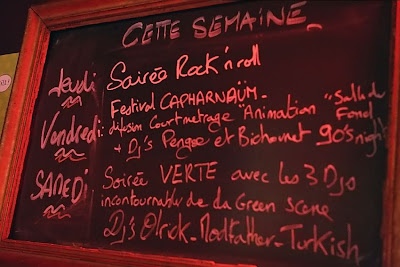 CETTE SEMAINE
Jeudi Soirée Rock'n roll
Festival CAPHARNAÜM -
Vendredi: difusion Court metrage "Animation" Salle du Fond
+ Dj's Pengoe et Bichonnet 90's night
SAMEDI Soirée VERTE avec les 3 Djs
incontournable de la Green Scene
Dj's Olrick - Modfather - Turkish